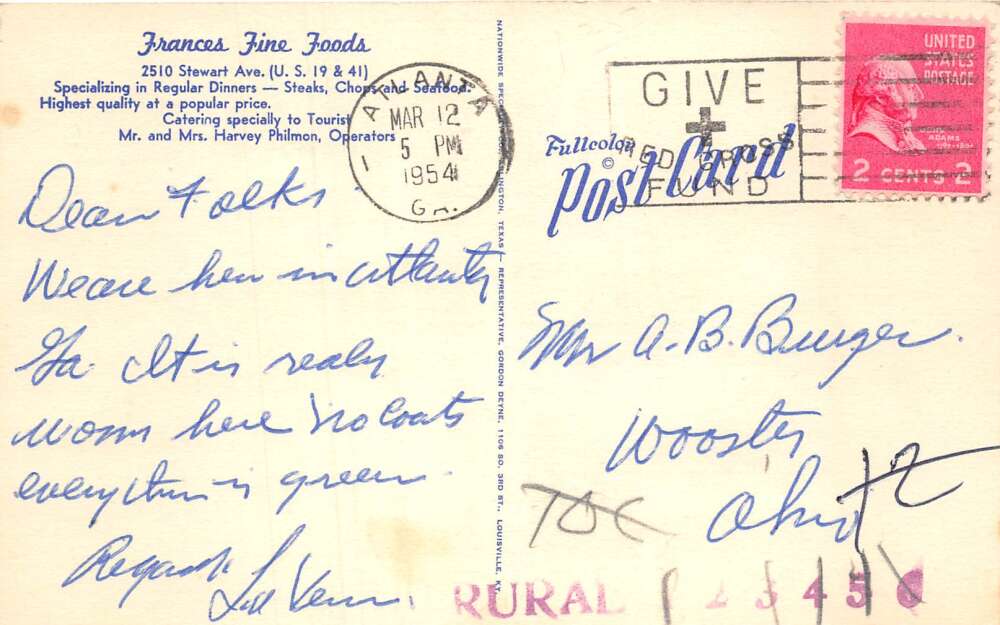 Frances Fine Foods
2510 Stewart Ave. (U. S. 19 & 41)
Specializing in Regular Dinners — Steaks, Chops and Seafood.
Highest quality at a popular price.
Catering specially to Tourist
Mr. and Mrs. Harvey Philmon, Operators
ATLANTA
MAR 12
5 PM
1954
GA.
GIVE
RED CROSS
FUND
UNITED
STATES
POSTAGE
ADAMS
2 CENTS 2
Fullcolor
Post Card
©
Dear Folks
We are here in Atlanta
Ga. It is realy
worm here no Coats
everything is green
Regards
La Vern.
NATIONWIDE SPEC
INGTON, TEXAS — REPRESENTATIVE, GORDON DEYNE, 1106 SO. 3RD ST., LOUISVILLE, KY.
Mr A. B. Burger.
Wooster
Ohio
RURAL 1 2 3 4 5 6